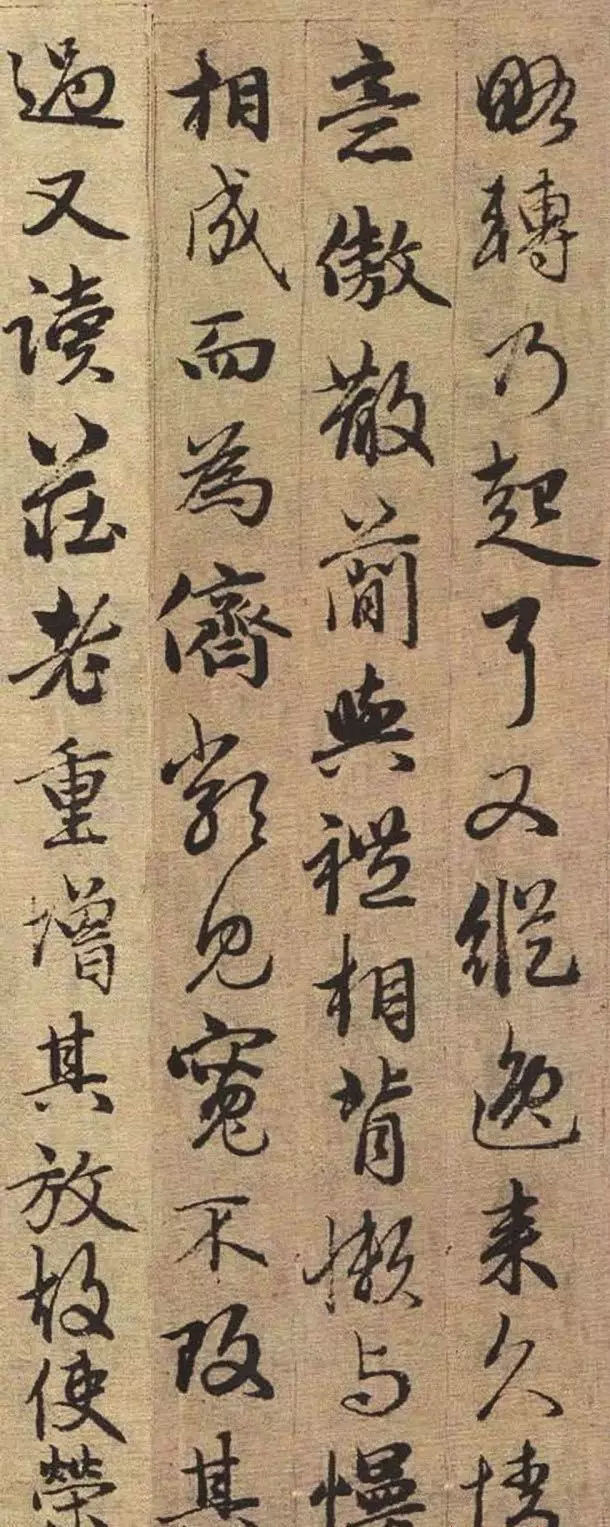 略轉乃起耳又縱逸来久情
意傲散簡與禮相背懶与慢
相成而為儕類見寬不改其
過又讀莊老重增其放故使榮